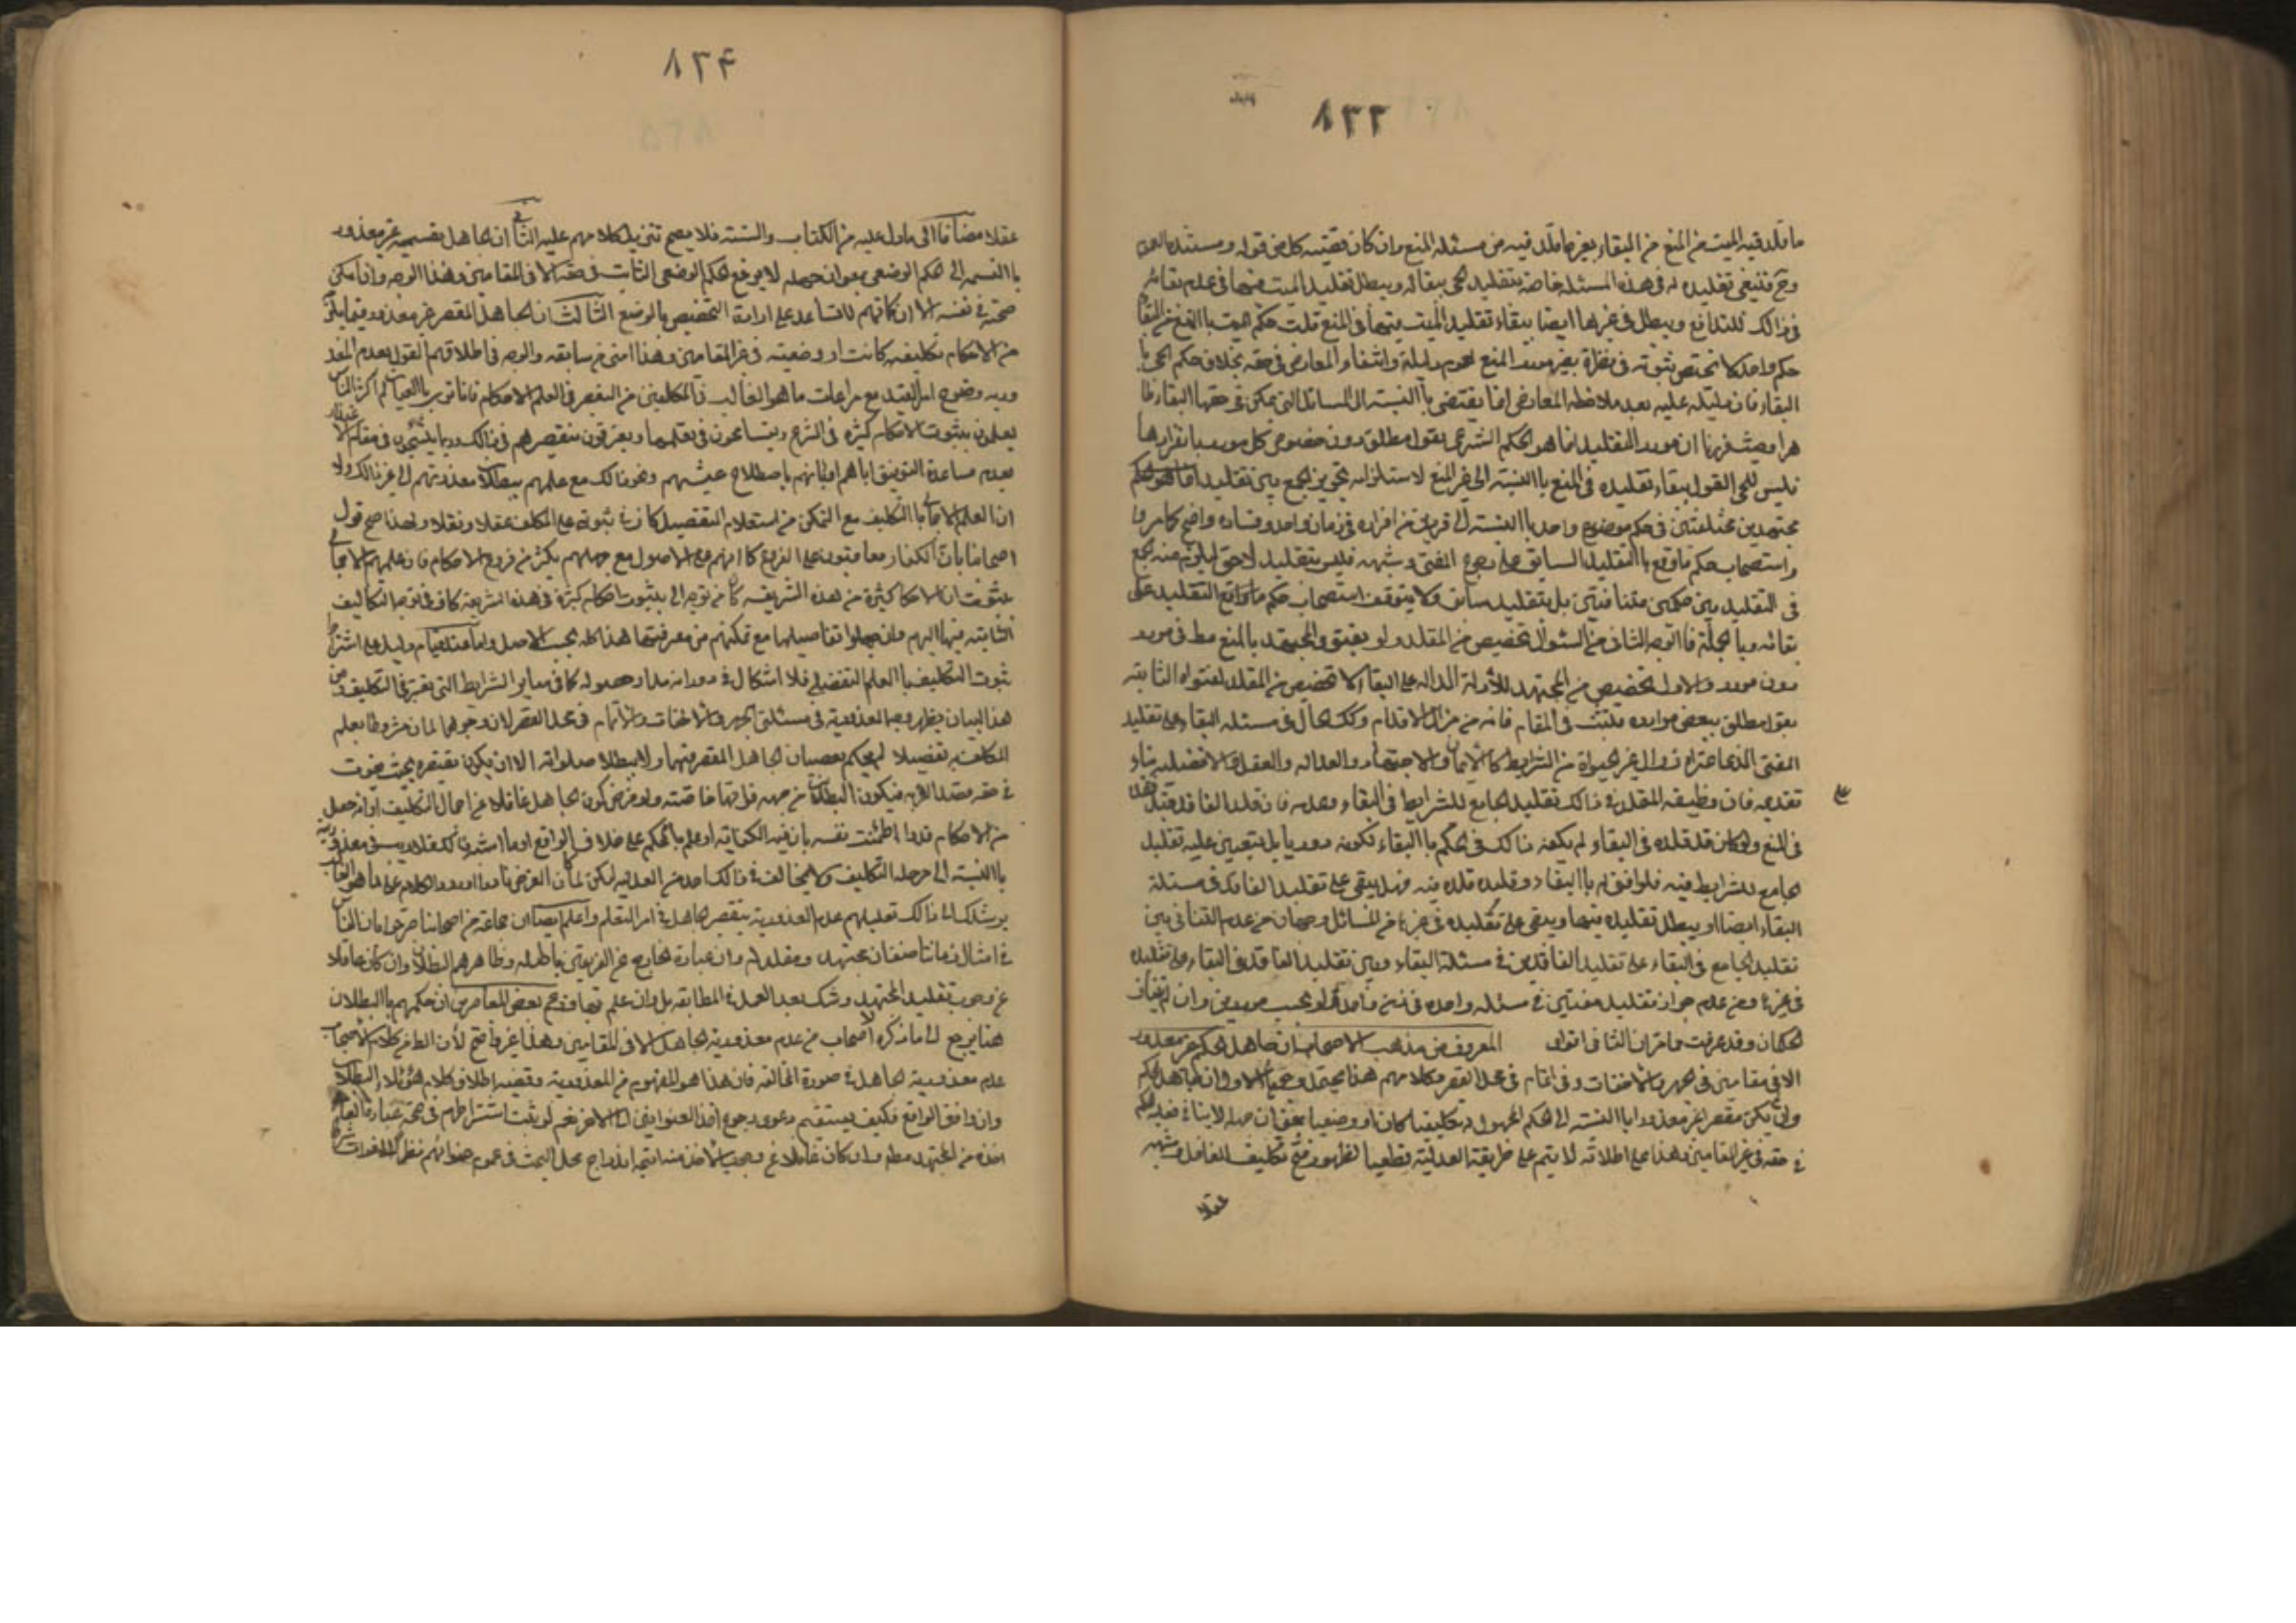 ٨٣٣
ما قلد فيه الميت من المنع من البقاء بغير ما قلد فيه من مسئلة المنع وان كان قضية كل من قوله ومستنده
وح فينبغي تقليده له في هذه المسئلة خاصة بتقليد الحي ببقائه ويبطل تقليد الميت فيها في عدم بقائه
في ذالك للتدافع ويبطل في غيرها ايضا ببقاء تقليد الميت فيها في المنع قلت حكم الميت باالمنع من البقاء
حكم واحد لا يختص ثبوته في نظره بغير مورد المنع لعموم دليله وانتفاء المعارض في حقه بخلاف حكم الحي
البقاء فان دليله عليه بعد ملاحظة المعارض انما يقتضي باالنسبة الى المسائل التي يمكن في حقها البقاء ظا
هرا وحيث قررنا ان مورد التقليد انما هو الحكم الشرعي بقول مطلق دون خصوص كل مورد بانفرادها
فليس للحي القول ببقاء تقليده في المنع باالنسبة الى غير المنع لاستلزامه تجويز الجمع بين تقليد
مجتهدين مختلفين في حكم موضوع واحد باالنسبة الى فريق من افراده في زمان واحد وفساده واضح كما مر
واستصحاب حكم ما وقع باالتقليد السابق على رجوع المفتي وشبهه فليس بتقليد لاحق ليلزم منه الجمع
في التقليد بين حكمين متنافيين بل بتقليد سابق ولا يتوقف استصحاب حكم ما وقع التقليد على
بقائه وبا لجملة فاالوجه الثاني من السئوال تخصيص من المقلد ولو بفتوى المجتهد بالمنع مط في مورد
دون مورد والاول تخصيص من المجتهد للأدلة الدالة على البقاء لا تخصيص من المقلد لفتواه الثابتة
بقول مطلق ببعض موارده فلتثبت في المقام فانه من مزال الاقدام وكك الحال في مسئلة البقاء على تقليد
المفتي الذي اعتراه زوال غير الحيوة من الشرايط كاالايمان والاجتهاد والعدالة والعقل والافضلية بناء
تقديمه فان وظيفة المقلد في ذالك تقليد الجامع للشرايط في البقاء وعدمه فان قلد الفاقد قبل
في المنع ولو كان قد قلده في البقاء ولم يكفه ذالك في الحكم باالبقاء لكونه دوريا بل يتعين عليه تقليد
الجامع للشرايط فيه فلو افتى له باالبقاء وقد قلده فيه فهل يبقى على تقليد الفاقد في مسئلة
البقاء ايضا او يبطل تقليده فيها ويبقى على تقليده في غيرها من المسائل وجهان من عدم التنافي بين
تقليد الجامع في البقاء على تقليد الفاقد في مسئلة البقاء وبين تقليد الفاقد في البقاء على تقليده
في غيرها ومن عدم جواز تقليد مفتيين في مسئلة واحدة في زمن واحد ولو بحسب موردين وان لم يتناف
الحكمان وقد عرفت مما مر ان الثاني اقوى المعروف من مذهب الاصحاب ان جاهل الحكم غير معذور
الا في مقامين في الجهر والاخفات وفي اتمام في محل القصر وكلامهم هذا يحتمل وجوها الاول ان الجاهل بالحكم
وان لم يكن مقصرا غير معذور باالنسبة الى الحكم المجهول تكليفيا كان او وضعيا بمعنى ان جهله لا ينافي
في حقه في غير المقامين وهذا على اطلاقه لا يتم على طريقة العدلية قطعيا لظهور قبح تكليف الغافل وشبهه
عقلا
٨٣۴
عقلا مضافا الى ما دل عليه من الكتاب والسنة فلا يصح تنزيل كلامهم عليه الثاني ان الجاهل بقسميه غير معذور
باالنسبة الى الحكم الوضعي بمعنى ان جهله لا يرفع الحكم الوضعي الثابت في حقه الا في المقامين وهذا الوجه وان امكن
صحته في نفسه الا ان كلماتهم لا تساعد على ارادة التخصيص بالوضع الثالث ان الجاهل المقصر غير معذور فيما
من الاحكام تكليفية كانت او وضعية في غير المقامين وهذا امتن من سابقه والوجه في اطلاقهم القول بعدم المعذ
ورية وضوح امر القيد مع مراعات ما هو الغالب في المكلفين من التقصير في العلم بالاحكام فانا نرى باالعيان ان اكثر الناس
يعلمون بثبوت الاحكام كثيرة في الشرع ويتسامحون في تعلمها ويعترفون بتقصيرهم في ذالك وربما يلتجئون في مقام الاعتذار
بعدم مساعدة التوفيق اياهم او بانهم باصطلاح عيشهم ونحو ذالك مع علمهم ببطلان معذرتهم الى غير ذالك ولا
ان العلم الاجمالي باالتكليف مع التمكن من استعلام التفصيل كاف في ثبوته على المكلف عقلا ونقلا ولهذا صح قول
اصحابنا بان الكفار معاقبون على الفروع كما انهم على الاصول مع جهلهم بكثير من فروع الاحكام فان علمهم الاجمالي
بثبوت احكام كثيرة من هذه الشريعة كاف في توجه التكاليف
الثابتة فيها اليهم وان جهلوا تفاصيلها مع تمكنهم من معرفتها هذا كله بحسب الاصل واما عند قيام دليل على اشتراط
ثبوت التكليف باالعلم التفصيلي فلا اشكال في دورانه مدار حصوله كما في ساير الشرايط التي تعتبر في التكليف ومن
هذا البيان يظهر وجه المعذورية في مسئلتي الجهر والاخفات والاتمام في محل القصر لان وجوبهما لما كان مشروطا بعلم
المكلف به تفصيلا لم يحكم بعصيان الجاهل المقصر فيهما ولا ببطلان صلواته الا ان يكون تقصيره بحيث يفوت
في حقه قصد القربة فيكون البطلان من جهة فواتها خاصة ولو فرض كون الجاهل غافلا عن احتمال التكليف او انه حصل
من الاحكام قدرا اطمئنت نفسه بان فيه الكفاية او علم باالحكم على خلاف الواقع
باالنسبة الى مرحلة التكليف ولا مخالف في ذالك احد من العدلية لكن لما كان الفرض نادرا اوردوا الكلام على ما هو الغالب
يرشدك الى ذالك تعليلهم عدم المعذورية بتقصير الجاهل في امر التعلم واعلم ايضا ان جماعة من اصحابنا صرحوا بان الناس
في امثال زماننا صنفان مجتهد ومقلد له وان عبادة الخارج عن الفريقين باطلة وظاهرهم البطلان وان كان غافلا
عن وجوب تقليد المجتهد وشك بعد العمل في المطابقة بل وان علم بها وزعم بعض المعاصرين ان حكمهم باالبطلان
هنا يرجع الى ما ذكره الاصحاب من عدم معذورية الجاهل الا في المقامين وهذا غير واضح لأن الظ من كلام الاصحاب
عدم معذورية الجاهل في صورة المخالفة فان هذا هو المفهوم من المعذورية وقضية اطلاق كلام هؤلاء البطلان
وان وافق الواقع فكيف يستقيم دعوى رجوع احد العنوانين الى الاخر نعم لو ثبت اشتراطهم في صحة عبادة
اخذه من المجتهد مطلقا وان كان غافلا عن وجوب الاخذ منه اتجه اندراج محل البحث في عموم عنوانهم نظرا